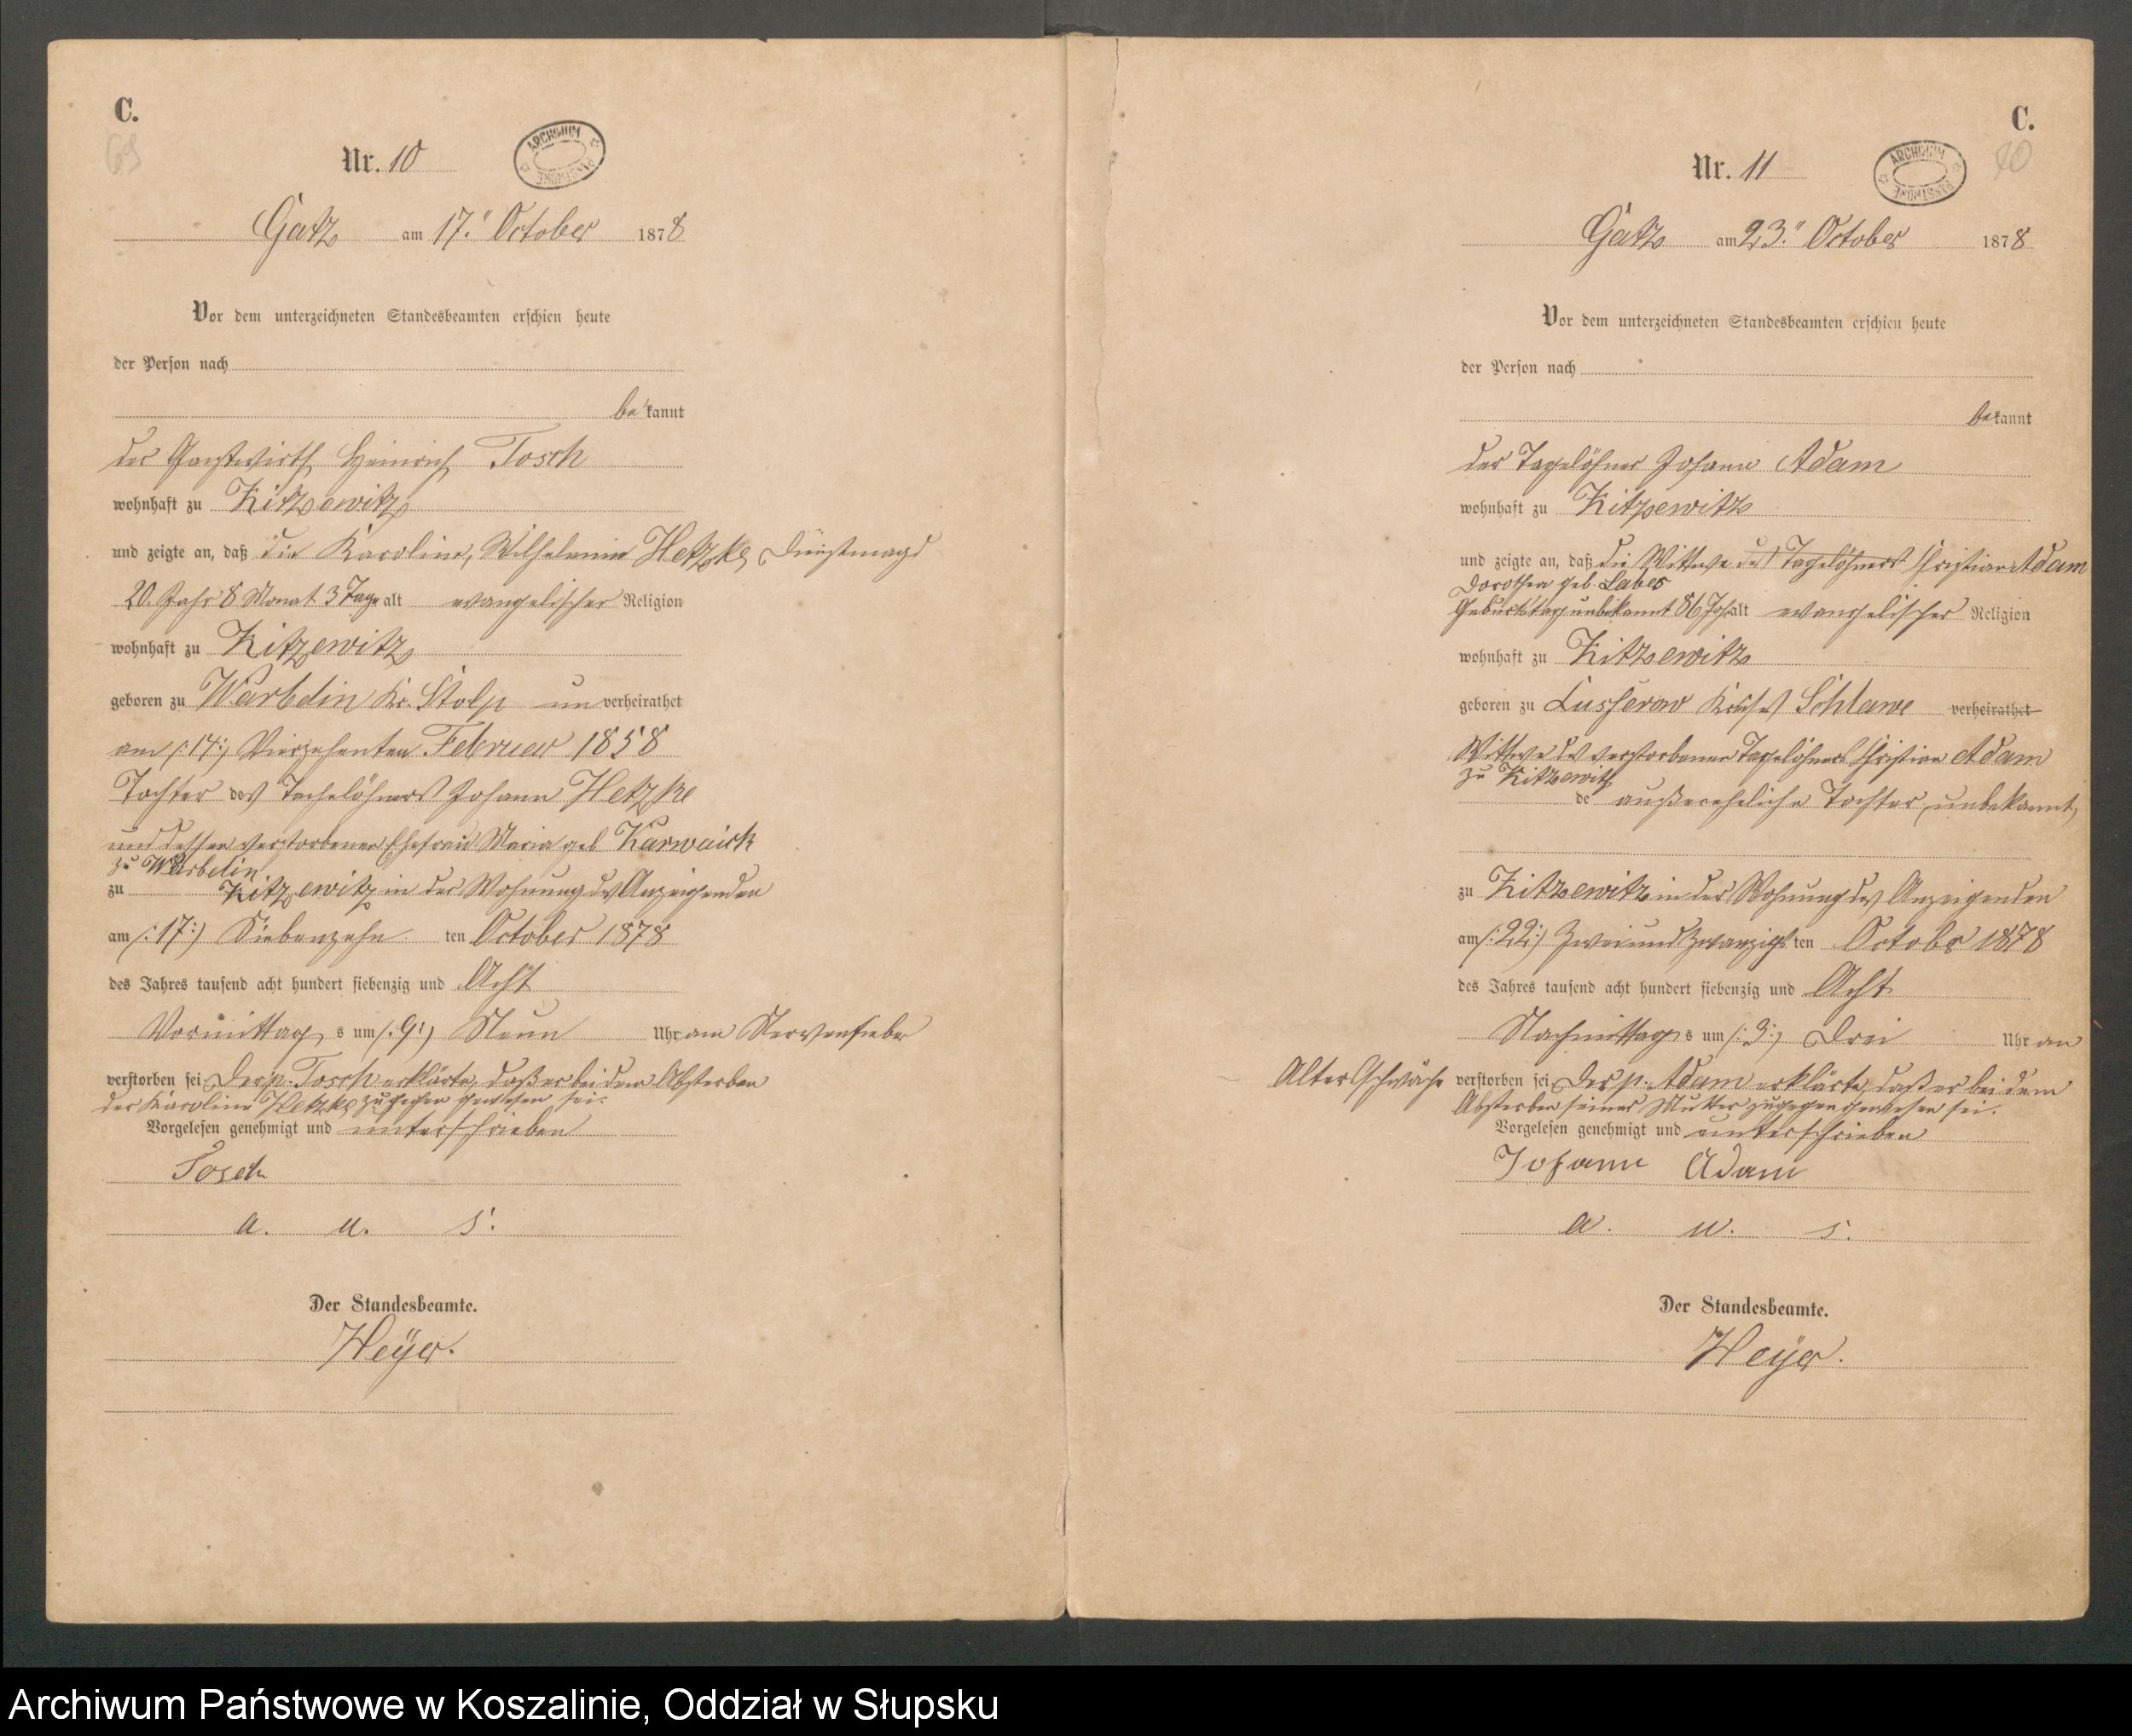 C.
69
Nr. 10
ARCHIWUM PAŃSTWOWE
Gatz am 17." October 1878
Vor dem unterzeichneten Standesbeamten erschien heute
der Person nach
bekannt
der Gastwirth Heinrich Tosch
wohnhaft zu Kitzewitz
und zeigte an, daß die Karoline, Wilhelmine Hetzke, Dienstmagd
20. Jahr 8 Monat 3 Tage alt evangelischer Religion
wohnhaft zu Kitzewitz
geboren zu Warbelin Kr. Stolp un verheirathet
am /:14:/ Vierzehnten Februar 1858
Tochter des Tagelöhners Johann Hetzke
und dessen verstorbenen Ehefrau Maria geb Karwaick
zu Warbelin.
zu Kitzewitz in der Wohnung des Anzeigenden
am /:17:/ Siebenzehn ten October 1878
des Jahres tausend acht hundert siebenzig und Acht
Vormittag s um /:9:/ Neun Uhr am Nervenfieber
verstorben sei Der p. Tosch erklärte, daß er bei dem Absterben
der Karoline Hetzke zugegen gewesen sei.
Vorgelesen genehmigt und unterschrieben
Tosch
a. u. s.
Der Standesbeamte.
Heÿer.
C.
70
Nr. 11
ARCHIWUM PAŃSTWOWE
Gatz am 23." October 1878
Vor dem unterzeichneten Standesbeamten erschien heute
der Person nach
bekannt
der Tagelöhner Johann Adam
wohnhaft zu Kitzewitz
und zeigte an, daß die Wittwe des Tagelöhners Christian Adam
Dorothea geb. Labes
Geburtstag unbekannt 86 Jahr alt evangelischer Religion
wohnhaft zu Kitzewitz
geboren zu Lusserow Kreises Schlawe verheirathet
Wittwe des verstorbenen Tagelöhners Christian Adam
zu Kitzewitz
de außereheliche Tochter, unbekannt
zu Kitzewitz in der Wohnung des Anzeigenden
am /:22:/ Zweiundzwanzigs ten October 1878
des Jahres tausend acht hundert siebenzig und Acht
Nachmittag s um /:3:/ Drei Uhr an
Altersschwäche verstorben sei Der p. Adam erklärte, daß er bei dem
Absterben seiner Mutter zugegen gewesen sei.
Vorgelesen genehmigt und unterschrieben
Johann Adam
a. u. s.
Der Standesbeamte.
Heÿer.
Archiwum Państwowe w Koszalinie, Oddział w Słupsku